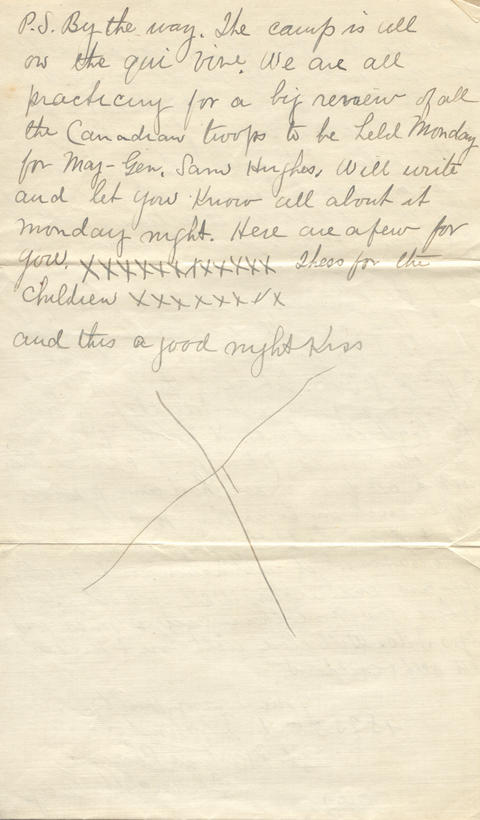 P.S. By the way. The camp is all
on the qui vive. We are all
practicing for a big review of all
the Canadian troops to be held Monday
for Maj-Gen. Sam Hughes. Will write
and let you know all about it
monday night. Here are a few for
you. XXXXXXXXXXXXX Thess for the
children XXXXXXXXX
and this a good night Kiss
X